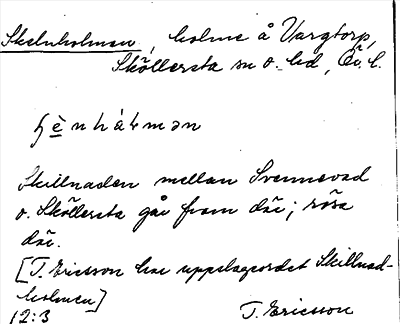 Skelnholmen, holme å Vargtorp,
Sköllersta sn o. hd, Ör. l.
Skillnaden mellan Svennevad
o. Sköllersta går fram där; rösa
där.
[T. Ericson har uppslagsordet Skillnad-
holmen]
12:3 T. Ericsson